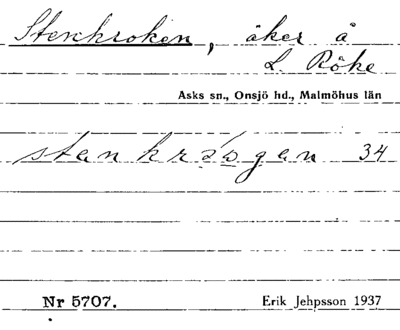 Stenkroken, åker å
L. Röke
Asks sn., Onsjö hd., Malmöhus län
34
Nr 5707.
Erik Jehpsson 1937